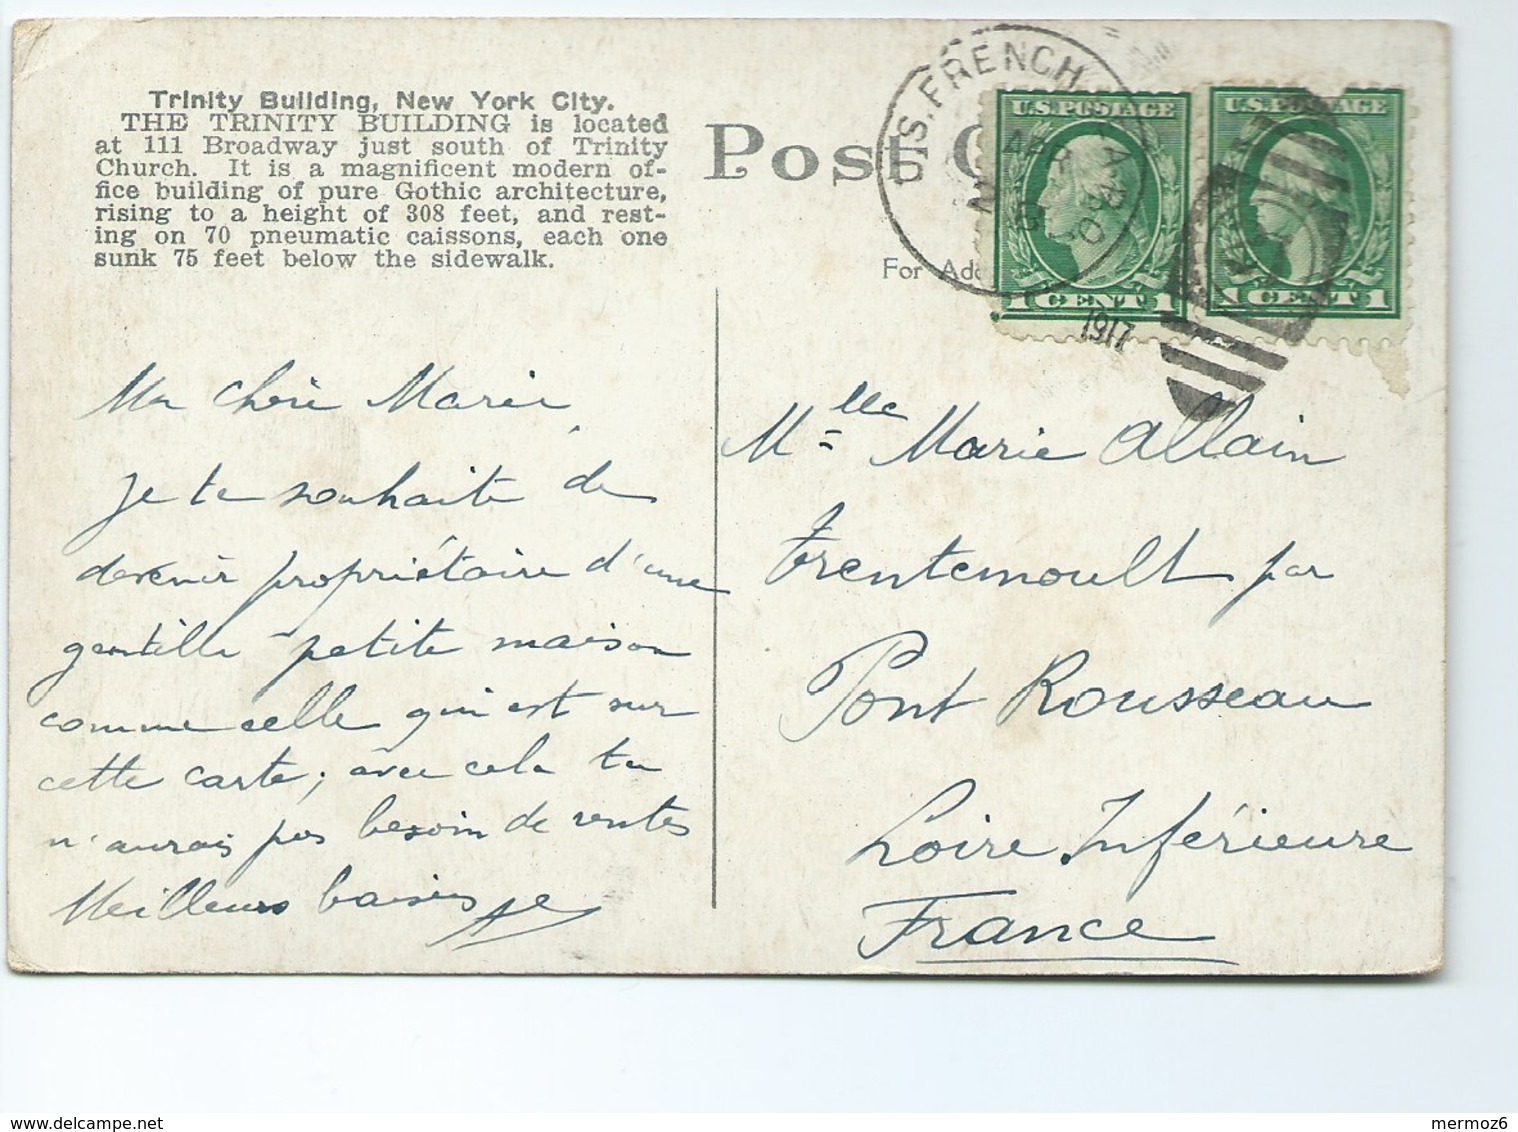 Trinity Building, New York City.
THE TRINITY BUILDING is located
at 111 Broadway just south of Trinity
Church. It is a magnificent modern of-
fice building of pure Gothic architecture,
rising to a height of 308 feet, and rest-
ing on 70 pneumatic caissons, each one
sunk 75 feet below the sidewalk.
Post C
For Add
U.S. FRENCH
APR
1917
U.S. POSTAGE
1 CENT 1
U.S. POSTAGE
1 CENT 1
Ma Chère Marie
je te souhaite de
devenir propriétaire d'une
gentille petite maison
comme celle qui est sur
cette carte; avec cela tu
n'aurais pas besoin de rentes
Meilleurs baisers
Mlle Marie Allain
Trentemoult par
Pont Rousseau
Loire Inférieure
France
mermoz6